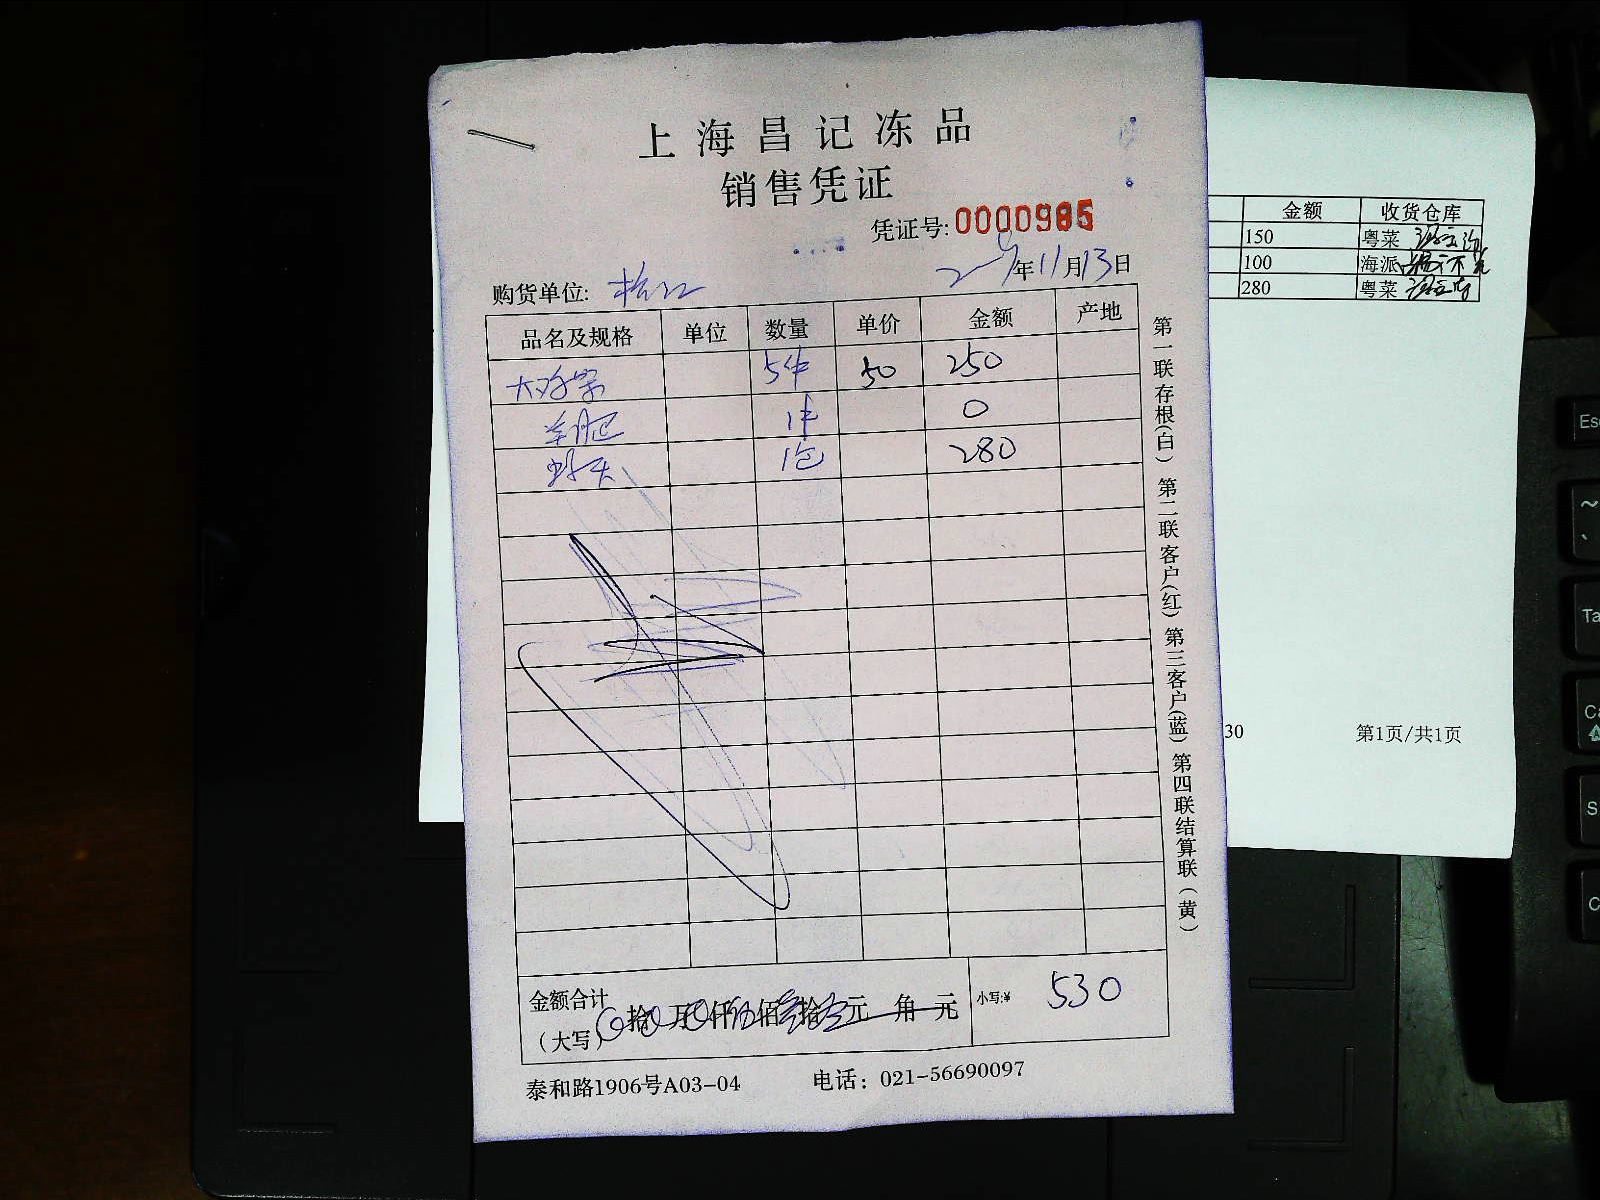 上海昌记冻品
销售凭证
凭证号:0000985
年11月13日
购货单位: 松江
品名及规格 单位 数量 单价 金额 产地
5件 50 250
羊肥 1件 0
虾头 1包 280
金额合计
(大写) 拾 万 仟 佰 拾 元 角 元 小写:¥ 530
泰和路1906号A03-04 电话: 021-56690097
第一联存根(白) 第二联客户(红) 第三客户(蓝) 第四联结算联(黄)
金额 收货仓库
150 粤菜
100 海派
280 粤菜
30 第1页/共1页